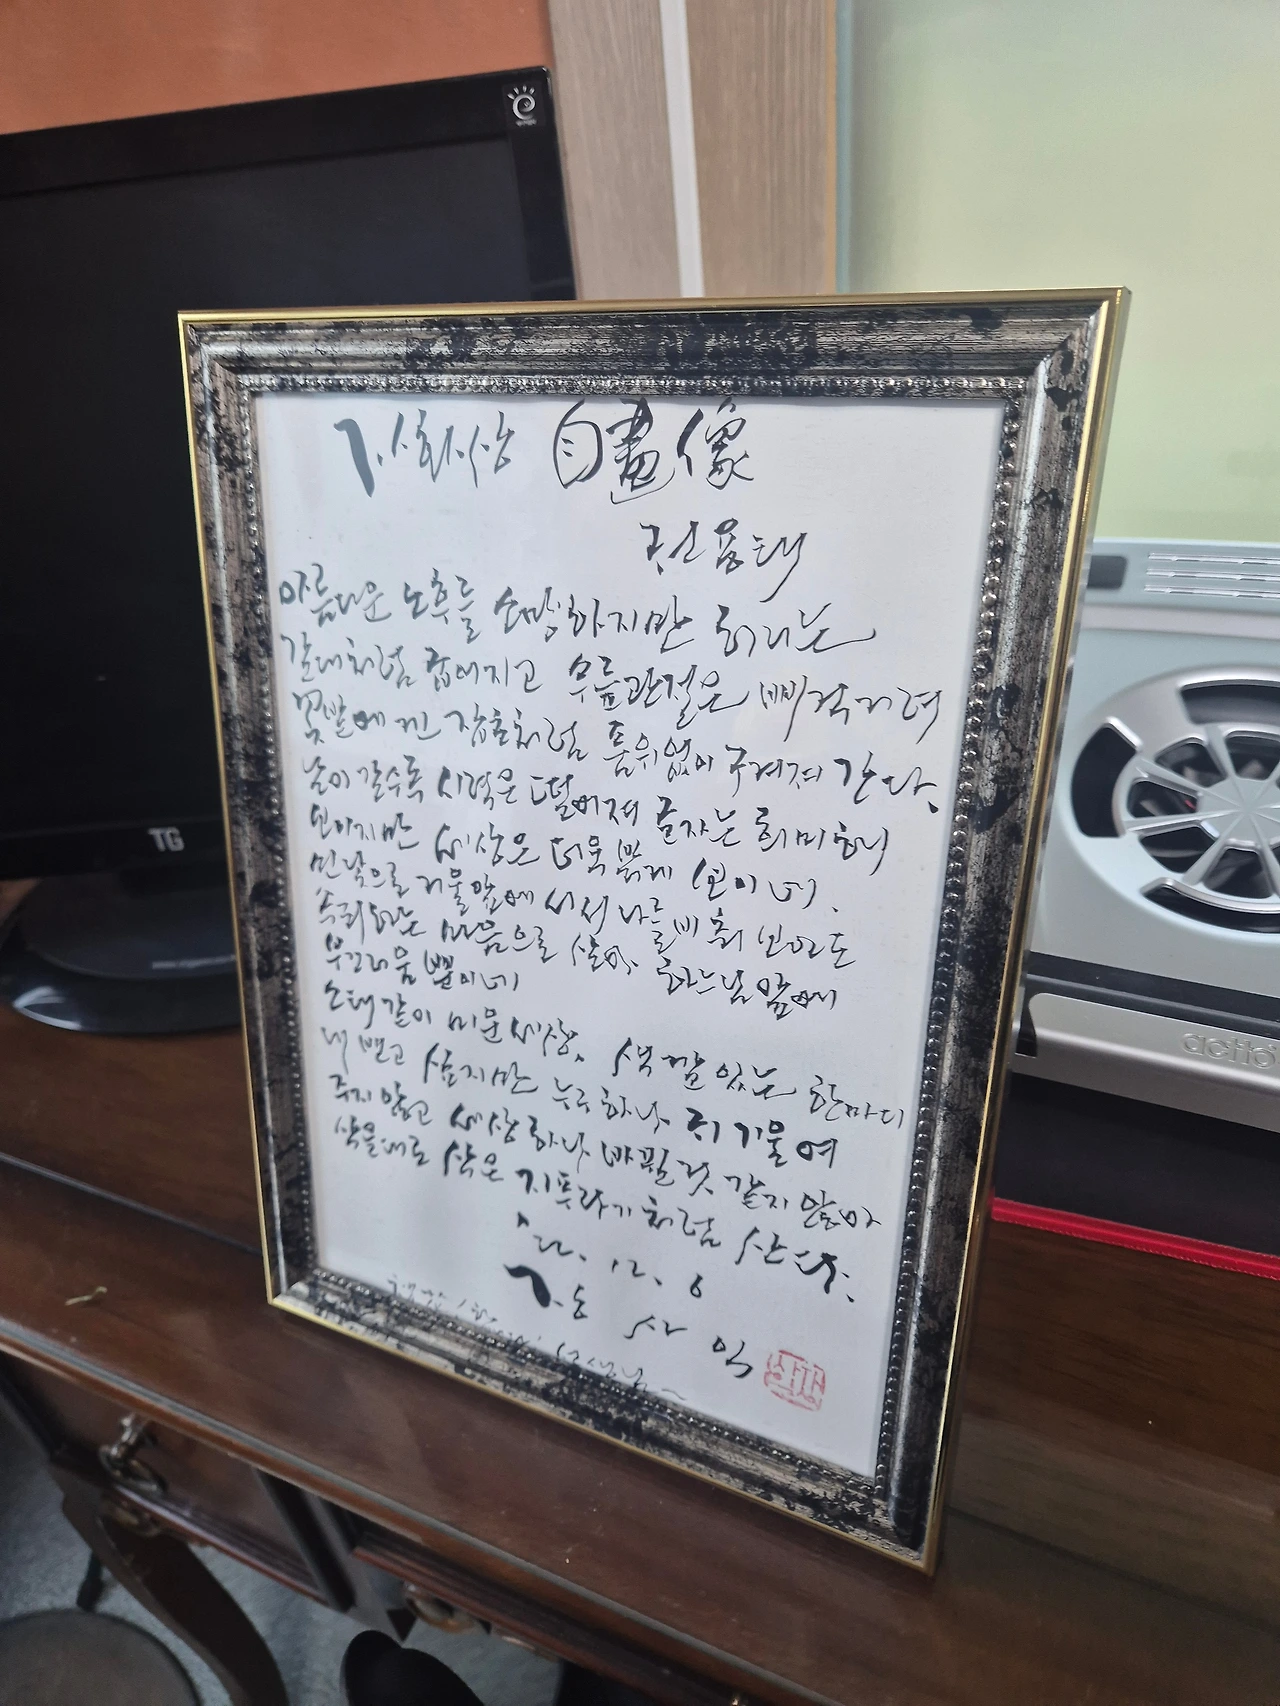 자화상 自畫像
전용태
아름다운 노후를 소망하지만 허리는
갈대처럼 굽어지고 무릎관절은 삐걱거려
못밭에 낀 잡초처럼 품위없이 구겨져 간다.
날이 갈수록 시력은 떨어져 글자는 희미하게
보이지만 세상은 더욱 밝게 보이네.
민낯으로 거울앞에 서서 나를 비춰 보아도
속죄하는 마음으로 살아 하느님 앞에
부끄러움 뿐이네
소태같이 미운세상. 색깔있는 한마디
내뱉고 싶지만 누구하나 귀기울여
주지 않고 세상 하나 바뀔것 같지 않아
삭을대로 삭은 지푸라기처럼 산다.
'22. 12. 6
TG
actto